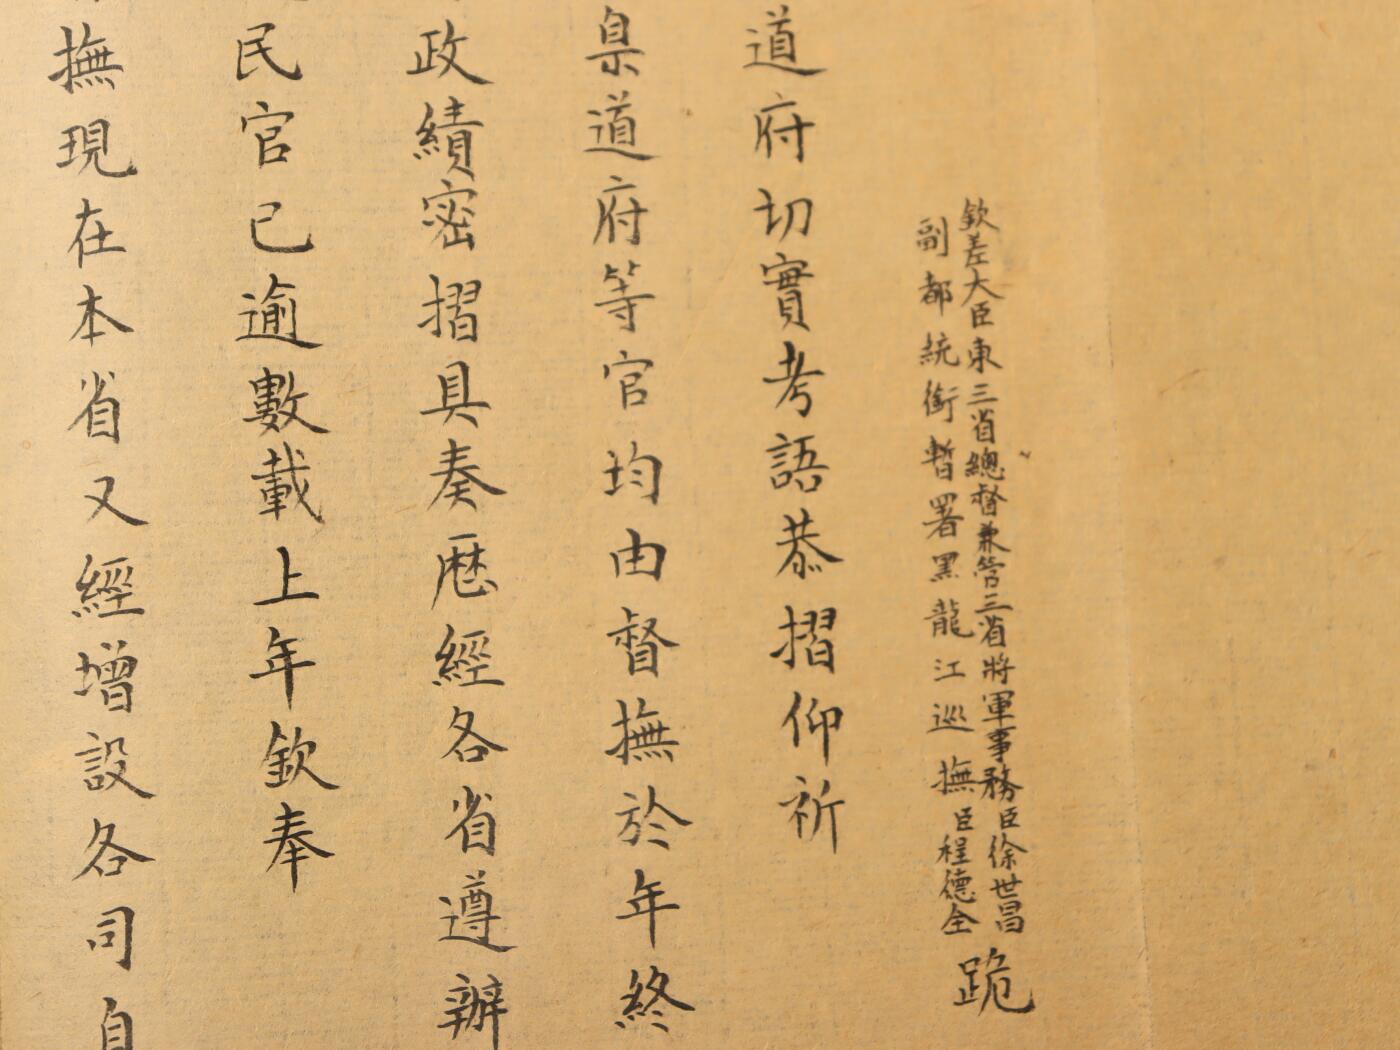 欽差大臣東三省總督兼管三省將軍事務臣徐世昌
副都統銜暫署黑龍江巡撫臣程德全
跪
道府切實考語恭摺仰祈
臬道府等官均由督撫於年終
政績密摺具奏歷經各省遵辦
民官已逾數載上年欽奉
撫現在本省又經增設各司自